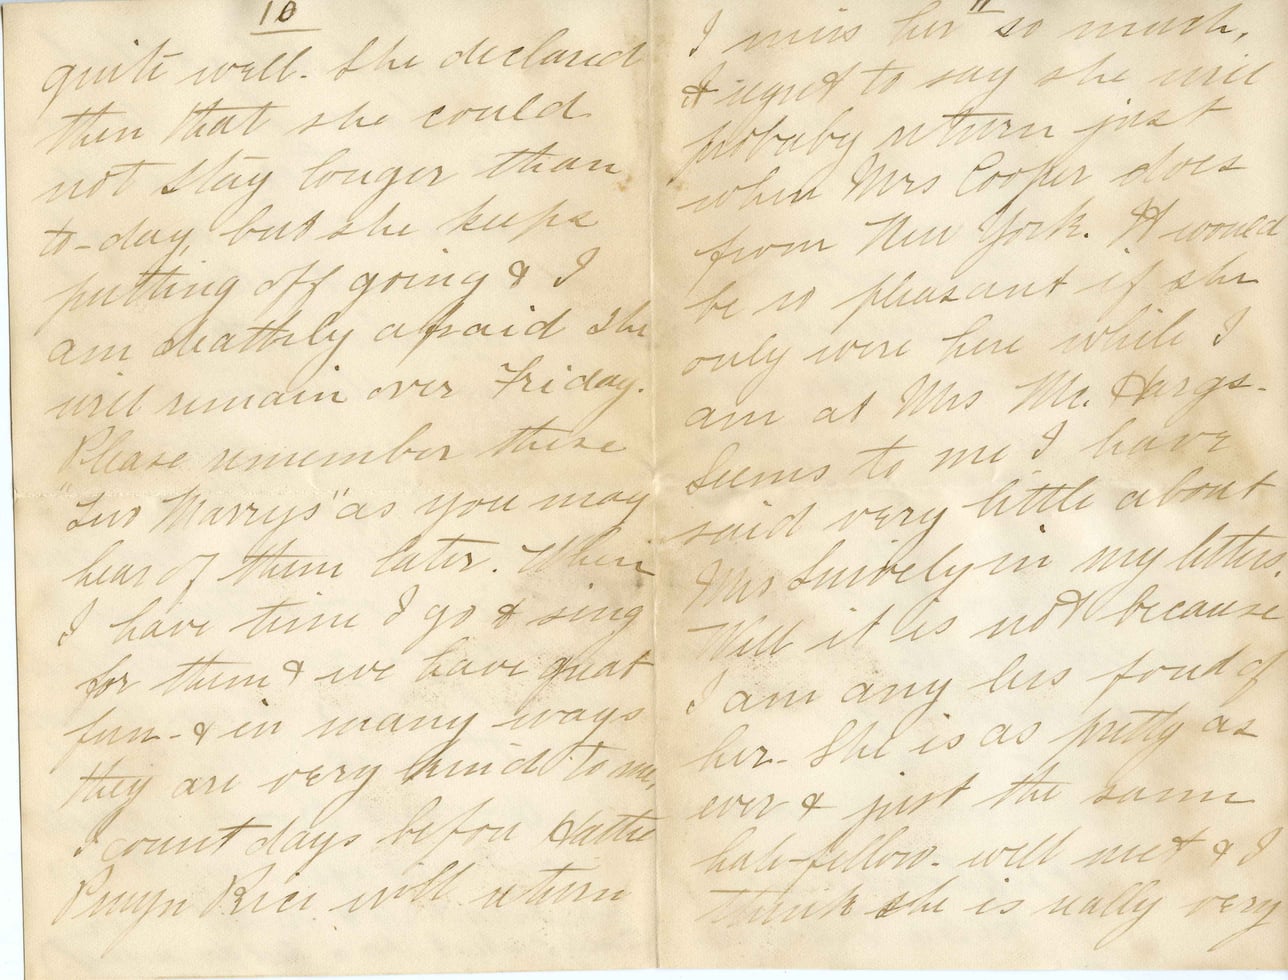 10
quite well. She declared
then that she could
not stay longer than
to-day, but she keeps
putting off going & I
am deathly afraid she
will remain over Friday.
Please remember these
"Two Marrys" as you may
hear of them later. When
I have time I go & sing
for them & we have great
fun - & in many ways
they are very kind to me,
I count days before Hattie
Pruyn Rice will return
11
I miss her so much,
& regret to say she will
probaby return just
when Mrs Cooper does
from New York. It would
be so pleasant if she
only were here while I
am at Mrs Mc. Hargs-
Seems to me I have
said very little about
Mrs Snively in my letters.
Well it is not because
I am any less fond of
her- She is as pretty as
ever & just the same
hale-fellow- well met & I
think she is really very